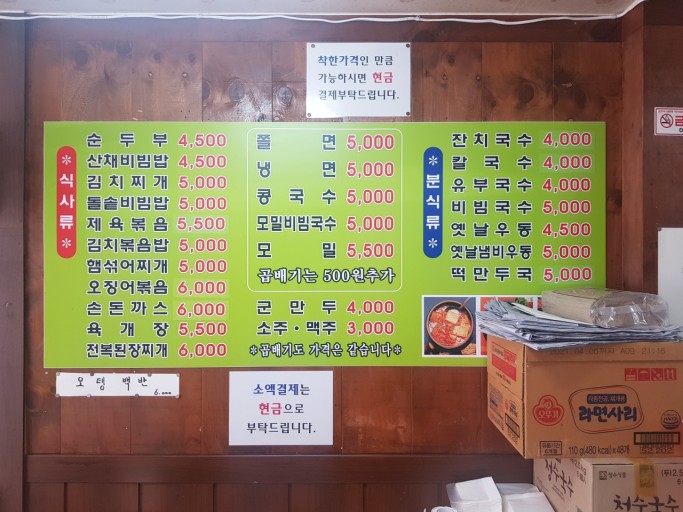 착한가격인 만큼
가능하시면 현금
결제부탁드립니다.
*식사류*
순두부 4,500
산채비빔밥 4,500
김치찌개 5,000
돌솥비빔밥 5,000
제육볶음 5,500
김치볶음밥 5,000
햄섞어찌개 5,000
오징어볶음 6,000
손돈까스 6,000
육개장 5,500
전복된장찌개 6,000
쫄면 5,000
냉면 5,000
콩국수 5,000
모밀비빔국수 5,000
모밀 5,500
곱배기는 500원추가
군만두 4,000
소주·맥주 3,000
*곱배기도 가격은 같습니다*
*분식류*
잔치국수 4,000
칼국수 4,000
유부국수 4,000
비빔국수 5,000
옛날우동 4,500
옛날냄비우동 5,000
떡만두국 5,000
오뎅백반 6.000
소액결제는
현금으로
부탁드립니다.
금
오뚜기
라면사리
110g(480 kcal)x48개
청수식품
청수국수